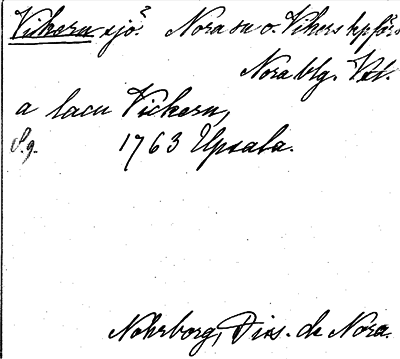 Vikern sjö? Nora sn o. Vikers kpförs.
Nora blg. Vstl.
a lacu Vickern,
S. 9. 1763 Upsala.
Nohrborg, Diss. de Nora.